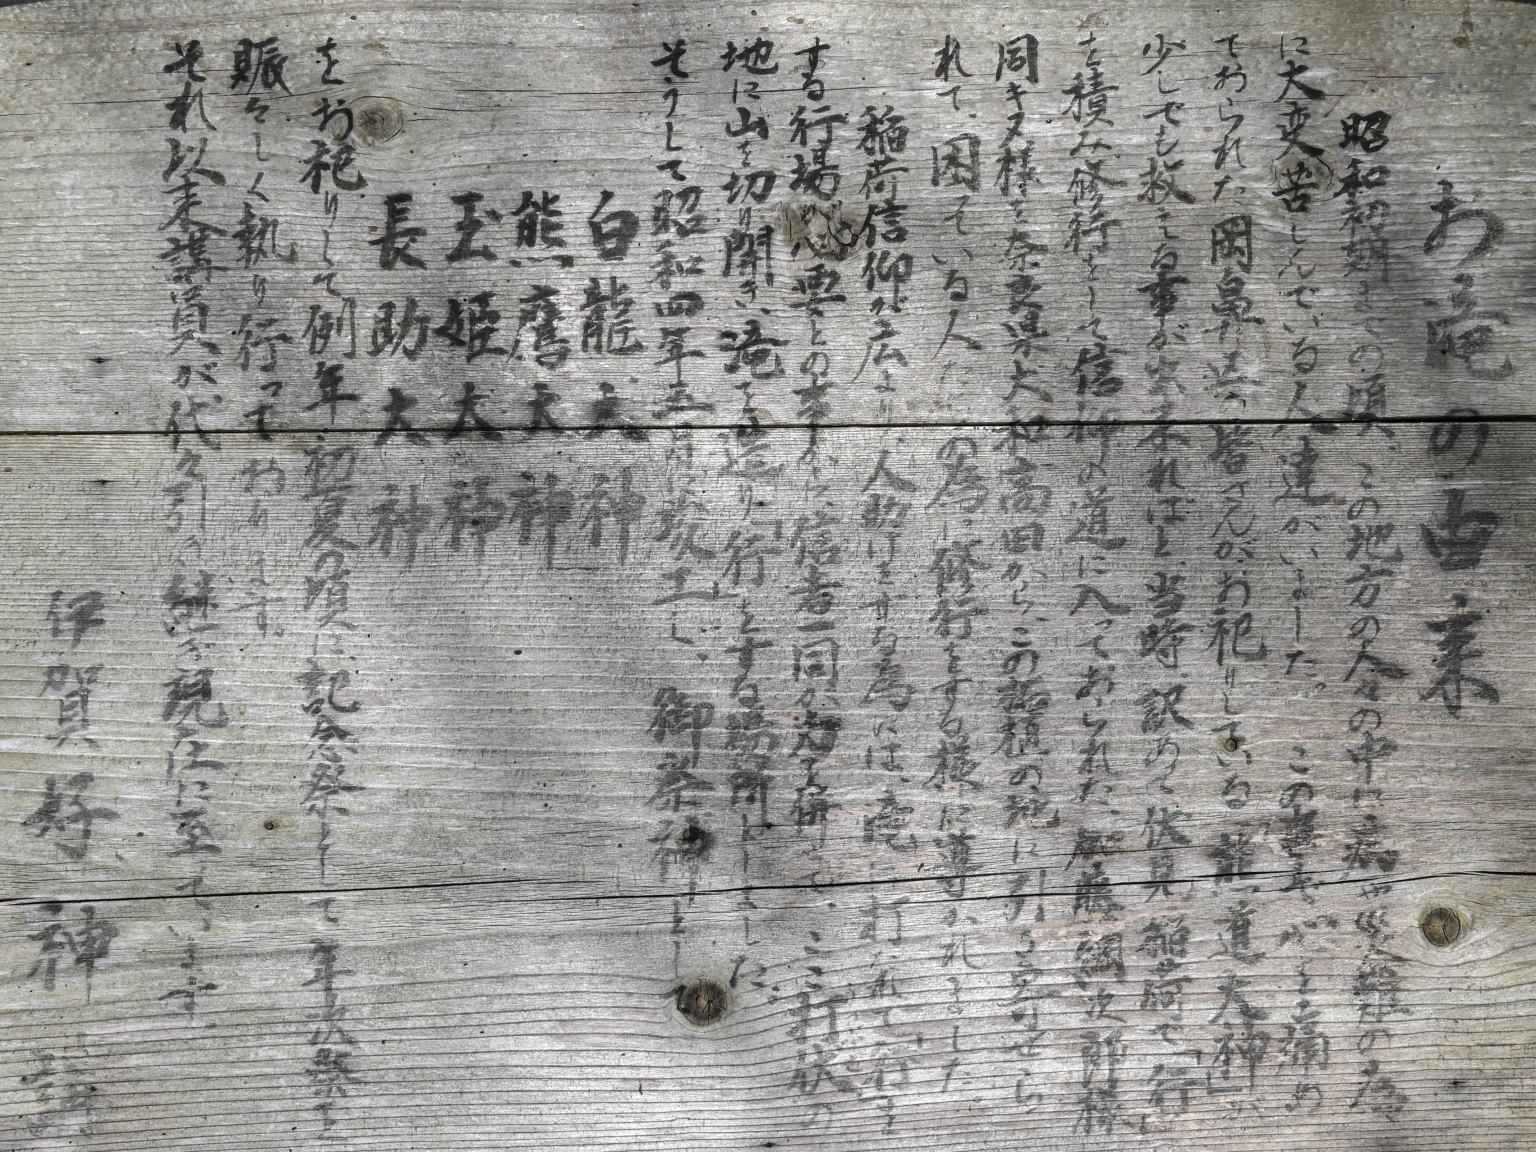 お滝の由来
昭和初期とての頃、この地方の人々の中に病や災難の為
に大変苦しんでいる人達がいました。この事に心を痛め
ておられた岡鼻の皆さんがお祀りしている「龍道大神」が
少しでも救える事が出来ればと、当時、訳あって伏見稲荷で「行」
を積み修行をして信仰の道に入っておられた、加藤綱次郎様
同キヌ様を奈良県大和高田から、この 植の地に引き寄せら
れて、困っている人 の為に修行をする様に導かれました。
稲荷信仰が広まり、人助けをする為には、滝に打たれて「行」を
する行場が必要との事から信者一同が力を併せて、ここ打伏の
地に山を切り開き、滝を造り「行」をする場所にしました。
そうして昭和四年五月に竣工し、御祭神として
白龍大神
熊鷹大神
玉姫大神
長助大神
をお祀りして例年、初夏の頃に記念祭として年次祭を
賑々しく執り行っております。
それ以来講員が、代々引き継ぎ現在に至っています。
伊賀好神講